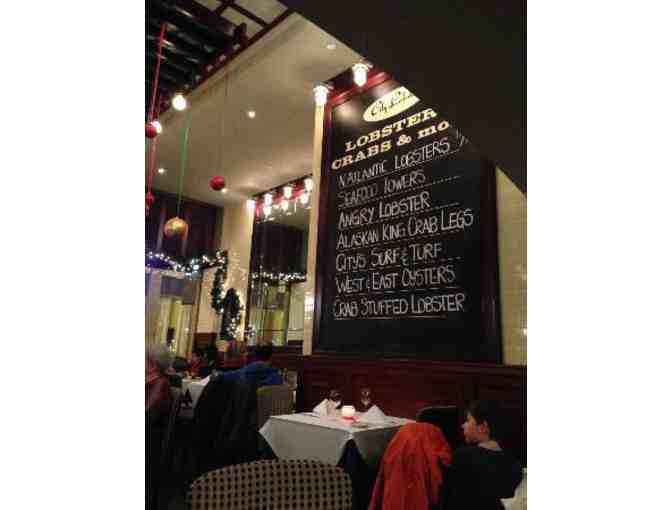 City
LOBSTER
CRABS & mo
N.ATLANTIC LOBSTERS
SEAFOOD TOWERS
ANGRY LOBSTER
ALASKAN KING CRAB LEGS
CITYS SURF & TURF
WEST & EAST OYSTERS
CRAB STUFFED LOBSTER